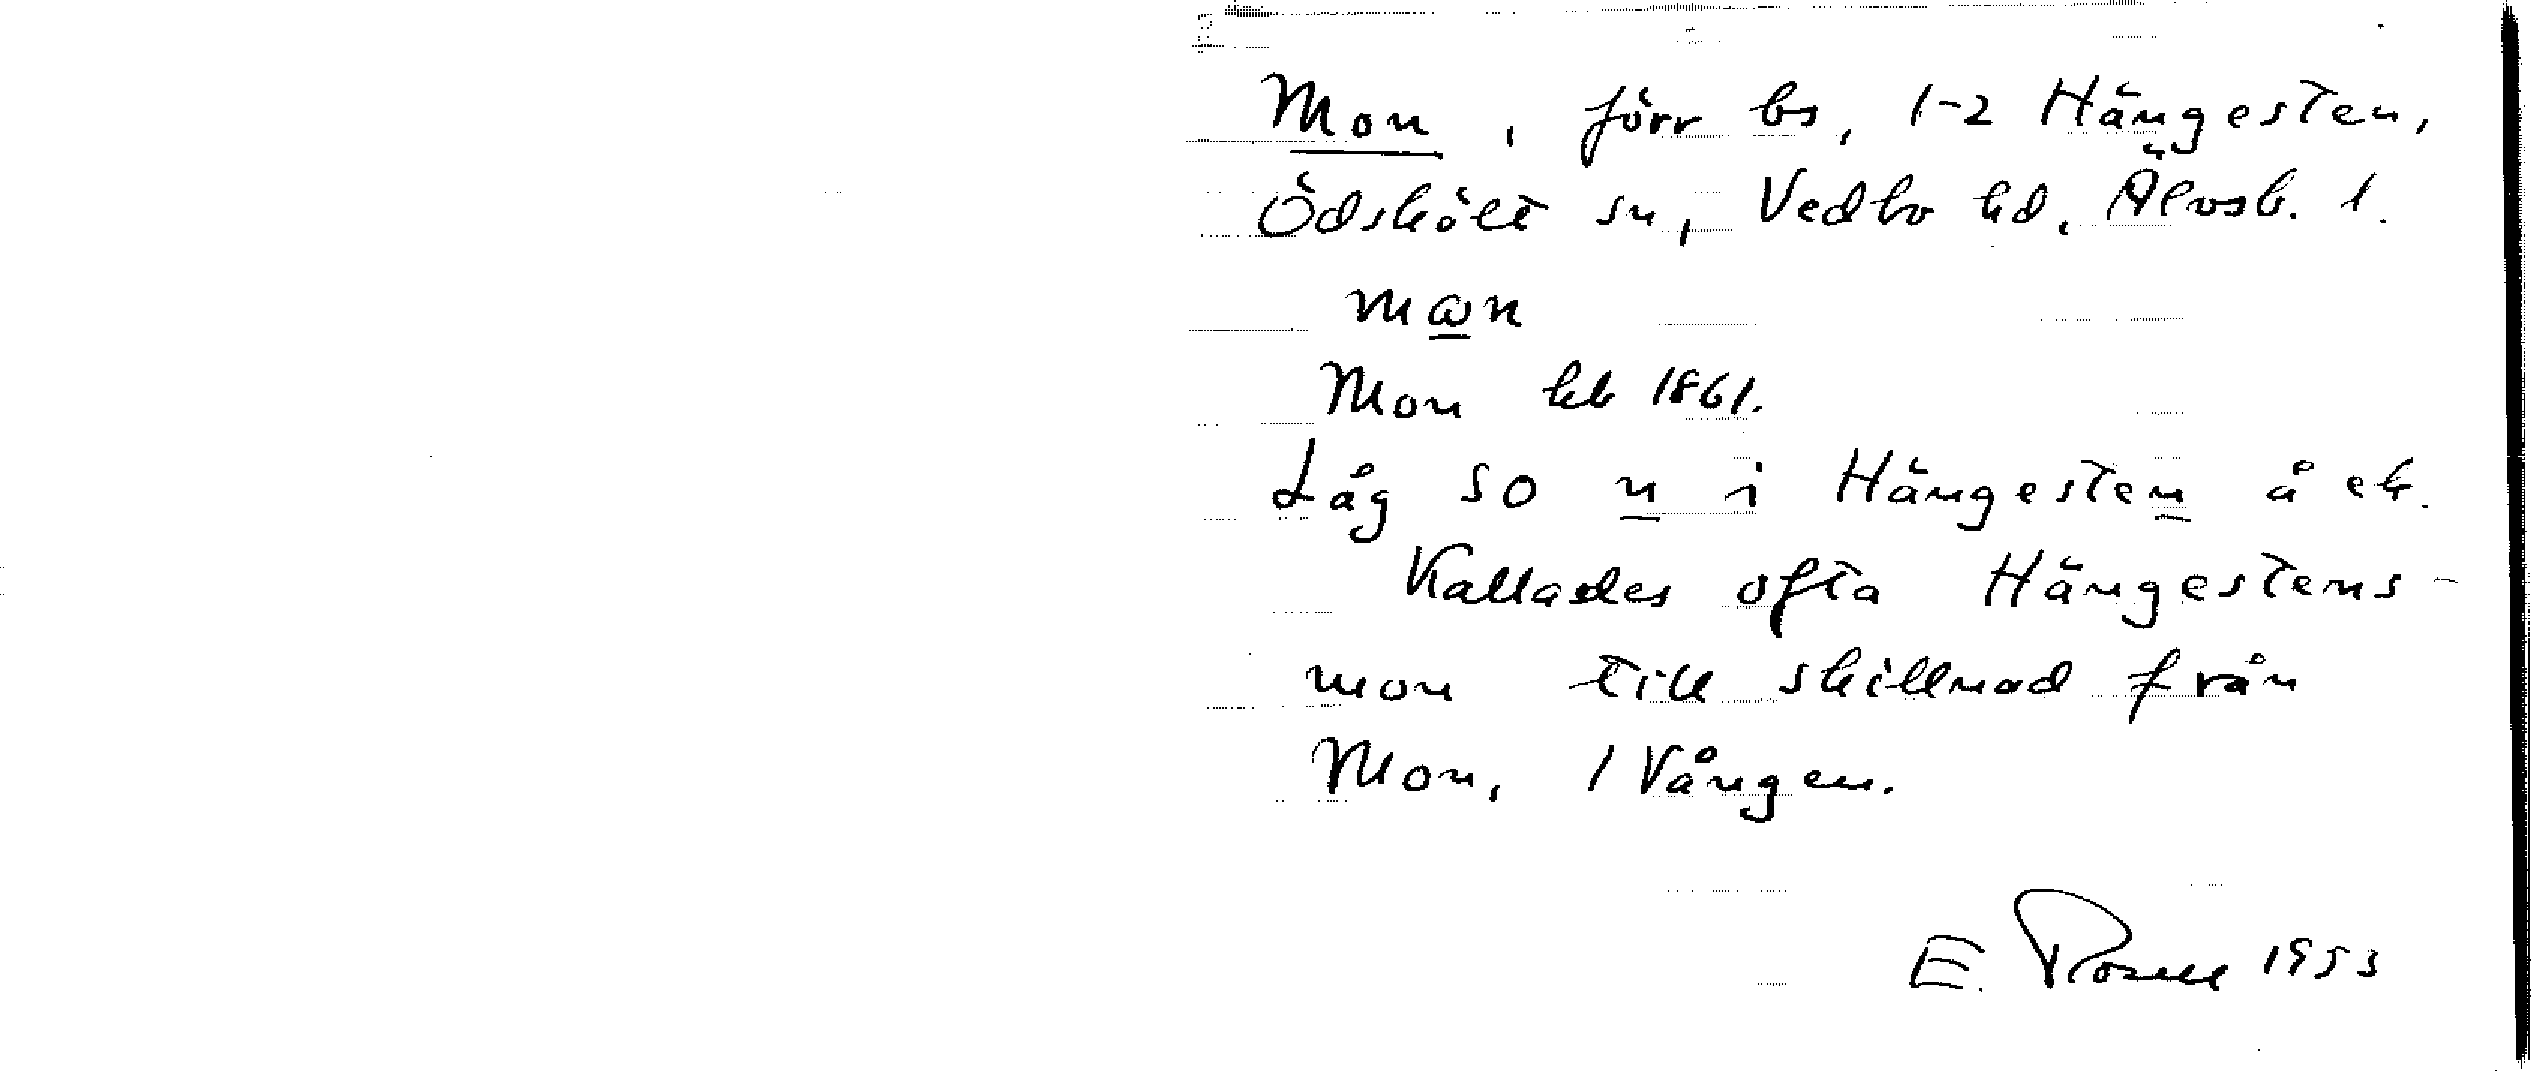 Mon, förr bs, 1-2 Hängesten,
Ödskölt sn, Vedbo hd, Älvsb. l.
Mon hb 1861.
Låg so n i Hängesten å ek.
Kallades ofta Hängestens-
mon till skillnad från
Mon, 1 Vången.
E. Rosell 1953